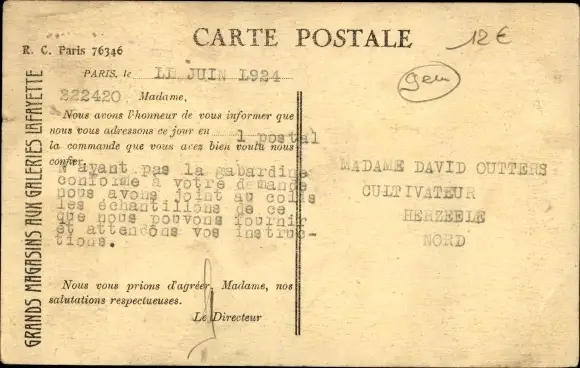 CARTE POSTALE
12€
R. C. Paris 76346
gen
GRANDS MAGASINS AUX GALERIES LAFAYETTE
PARIS, le LL JUIN L924
222420 Madame,
Nous avons l'honneur de vous informer que
nous vous adressons ce jour en 1 postal
la commande que vous avez bien voulu nous
confier.
N'ayant pas la gabardine
conforme à votre demande
nous avons joint au colis
les échantillons de ce
que nous pouvons fournir
et attendons vos instruc-
tions.
Nous vous prions d'agréer, Madame, nos
salutations respectueuses.
Le Directeur
MADAME DAVID OUTTERS
CULTIVATEUR
HERZEELE
NORD